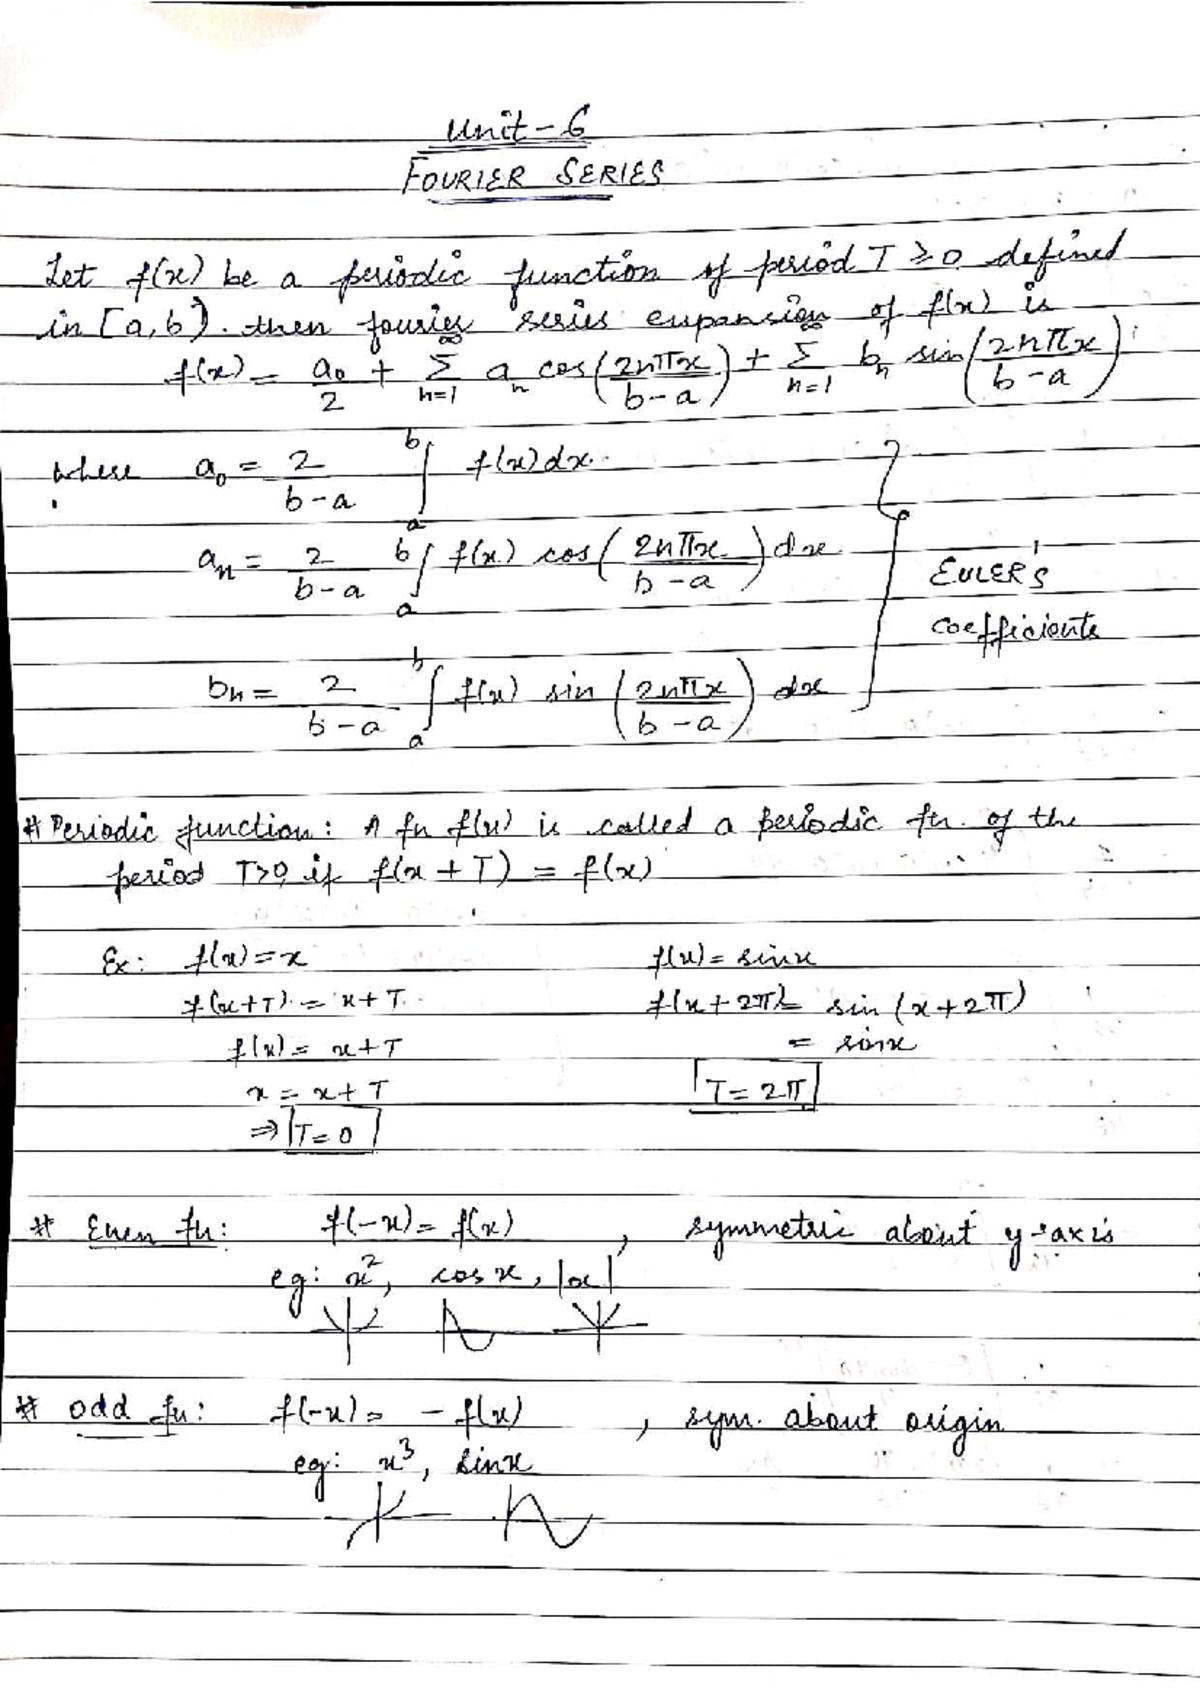 Unit-6
FOURIER SERIES
Let f(x) be a periodic function of period T ≥ 0 defined
in [a,b). then fourier series expansion of f(x) is
f(x) = a₀/2 + ∞Σn=1 aₙ cos(2nπx/b-a) + ∞Σn=1 bₙ sin(2nπx/b-a)
where a₀ = 2/b-a ∫ₐᵇ f(x)dx.
aₙ = 2/b-a ∫ₐᵇ f(x) cos(2nπx/b-a) dx
EULER'S
coefficients
bₙ = 2/b-a ∫ₐᵇ f(x) sin(2nπx/b-a) dx
# Periodic function: A fn f(x) is called a periodic fn. of the
period T>0 if f(x+T) = f(x)
Ex: f(x)=x f(x)= sinx
f(x+T) = x+T. f(x+2π)= sin(x+2π)
f(x)= x+T = sinx
x = x+T T=2π
⇒ T=0
# Even fn: f(-x)= f(x) , symmetric about y-axis
eg: x², cosx, |x|
# odd fn: f(-x)= - f(x) , sym. about origin
eg: x³, sinx